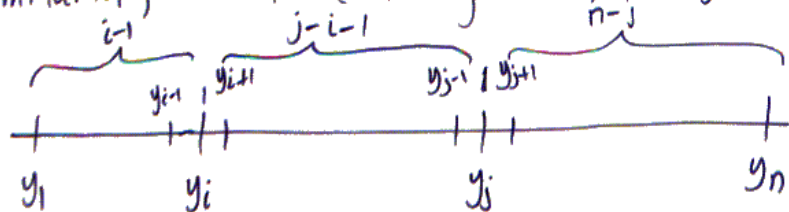 i-1 j-i-1 n-j
y_{i-1} 1 y_{i+1} y_{j-1} 1 y_{j+1}
y_1 y_i y_j y_n